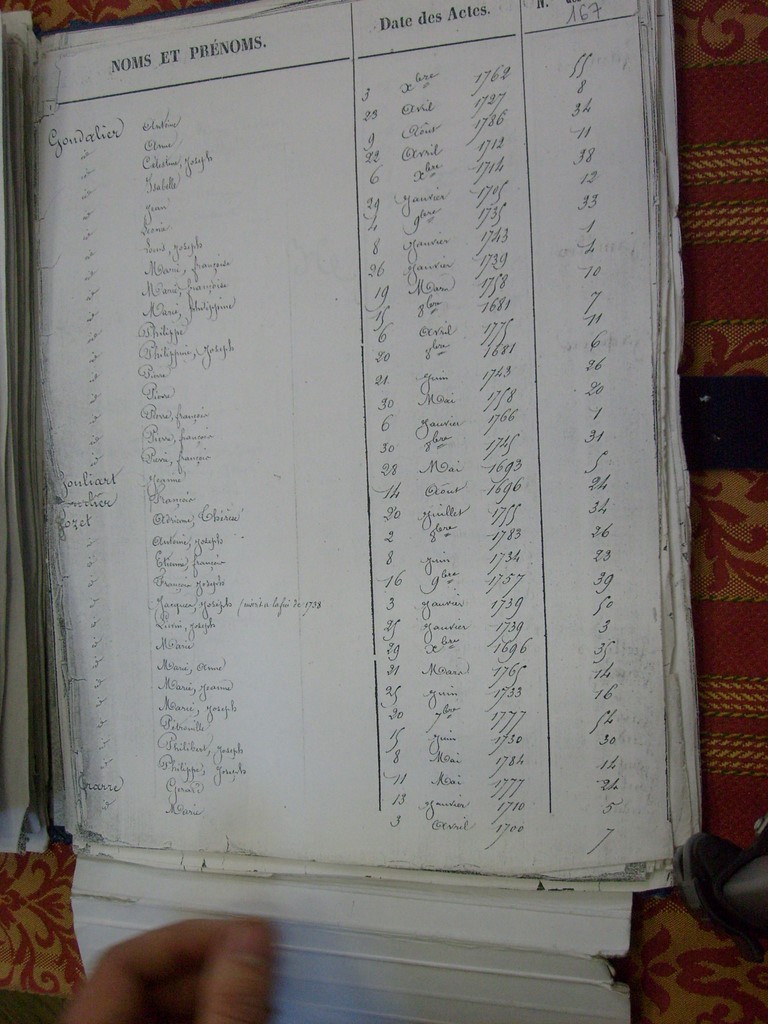 NOMS ET PRÉNOMS. Date des Actes. N.
167
Gondalier Antoine 3 xbre 1762 55
d° Anne 23 Avril 1727 8
d° Célestine, Joseph 9 Août 1786 34
d° Isabelle 22 Avril 1712 11
d° Jean 6 xbre 1714 38
d° 29 Janvier 1705 12
d° Louis, Joseph 4 9bre 1735 33
d° Marie, françoise 8 Janvier 1743 1
d° Marie, françoise 26 Janvier 1739 4
d° Marie, Philippine 19 Mars 1758 10
d° Philippe 15 8bre 1681 7
d° Philippine, Joseph 6 Avril 1775 11
d° Pierre 20 8bre 1681 6
d° Pierre 21 Juin 1743 26
d° Pierre, françois 30 Mai 1758 20
d° Pierre, françois 6 Janvier 1766 1
d° Pierre, françois 30 8bre 1745 31
Gouliart Jeanne 28 Mai 1693 5
François 14 Août 1696 24
Gozet Adrienne, Thérèse 20 Juillet 1755 34
d° Antoine, Joseph 2 8bre 1783 26
d° Etienne, françois 8 Juin 1734 23
d° François Joseph 16 9bre 1757 39
d° Jacques, Joseph (mort a la fin de 1738 3 Janvier 1739 50
d° Liévin, Joseph 25 Janvier 1739 3
d° Marie 29 xbre 1696 35
d° Marie, Anne 21 Mars 1765 14
d° Marie, Jeanne 25 Juin 1733 16
d° Marie, Joseph 20 7bre 1777 54
d° Pétronille 15 Juin 1730 30
d° Philibert, Joseph 8 Mai 1784 14
d° Philippe, Joseph 11 Mai 1777 24
Gérard 13 Janvier 1710 5
d° Marie 3 Avril 1700 7